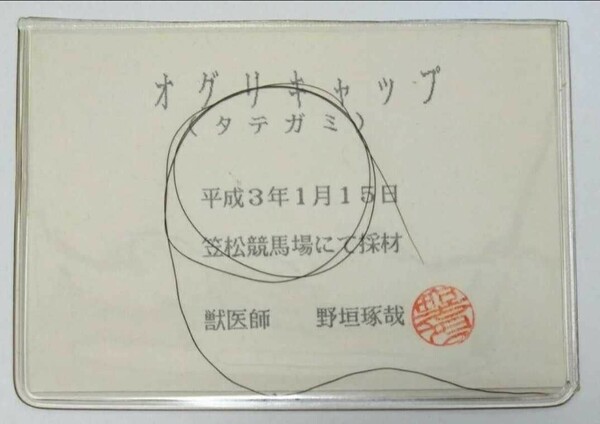 オグリキャップ
（タテガミ）
平成３年１月１５日
笠松競馬場にて採材
獣医師　　野垣琢哉